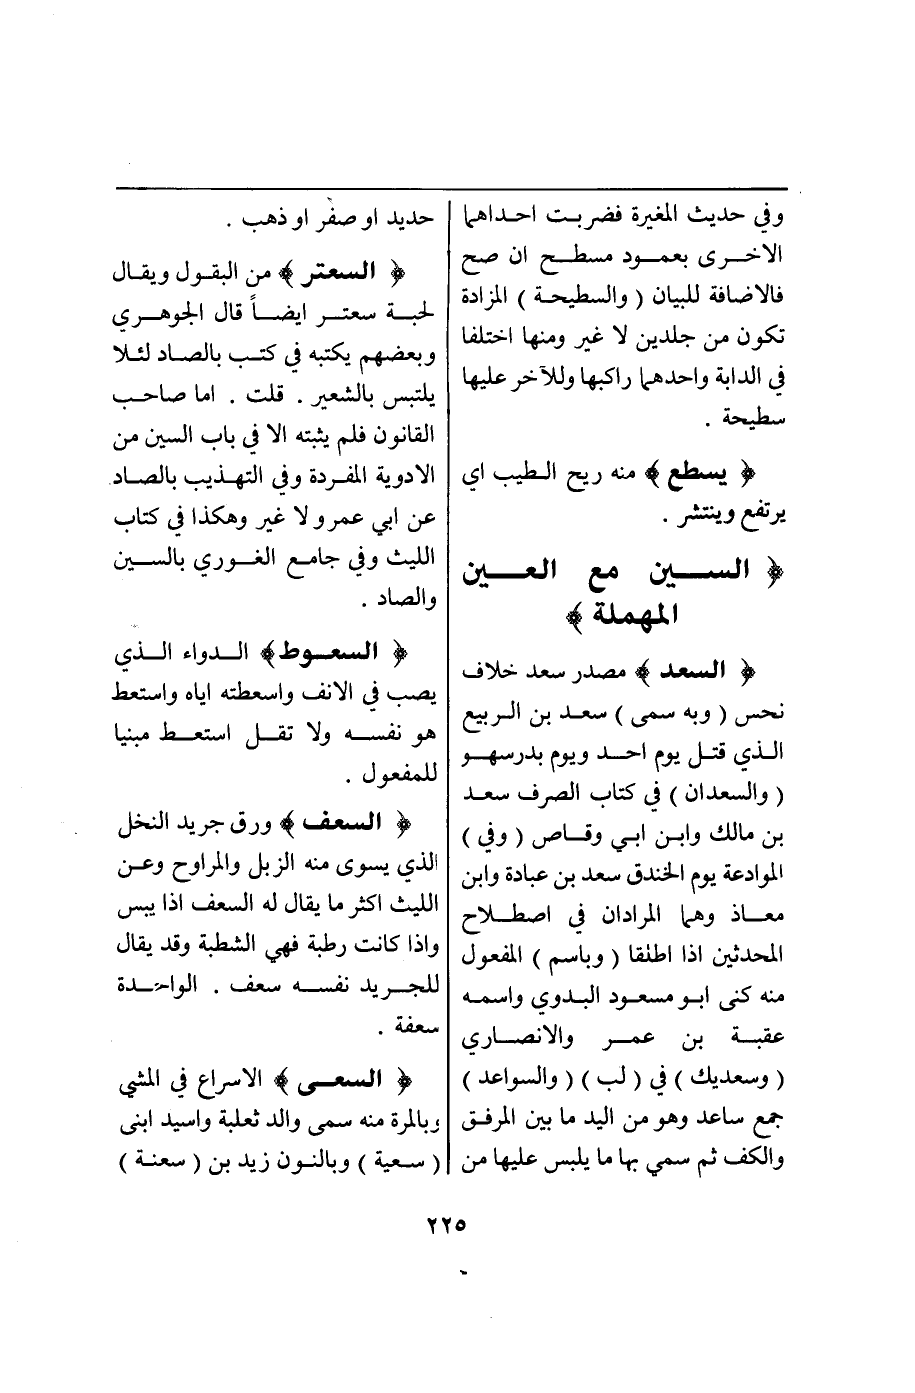 وفي حديث المغيرة فضربت احداهما
الاخرى بعمود مسطح ان صح
فالاضافة للبيان ( والسطيحة ) المزادة
تكون من جلدين لا غير ومنها اختلفا
في الدابة واحدهما راكبها وللآخر عليها
سطيحة .
﴿ يسطع ﴾ منه ريح الطيب اي
يرتفع وينتشر .
﴿ السين مع العين
المهملة ﴾
﴿ السعد ﴾ مصدر سعد خلاف
نحس ( وبه سمى ) سعد بن الربيع
الذي قتل يوم احد ويوم بدرسهو
( والسعدان ) في كتاب الصرف سعد
بن مالك وابن ابي وقاص ( وفي )
الموادعة يوم الخندق سعد بن عبادة وابن
معاذ وهما المرادان في اصطلاح
المحدثين اذا اطلقا ( وباسم ) المفعول
منه كنى ابو مسعود البدوي واسمه
عقبة بن عمر والانصاري
( وسعديك ) في ( لب ) ( والسواعد )
جمع ساعد وهو من اليد ما بين المرفق
والكف ثم سمي بها ما يلبس عليها من
حديد او صفر او ذهب .
﴿ السعتر ﴾ من البقول ويقال
لحبة سعتر ايضاً قال الجوهري
وبعضهم يكتبه في كتب بالصاد لئلا
يلتبس بالشعير . قلت . اما صاحب
القانون فلم يثبته الا في باب السين من
الادوية المفردة وفي التهذيب بالصاد
عن ابي عمرو لا غير وهكذا في كتاب
الليث وفي جامع الغوري بالسين
والصاد .
﴿ السعوط ﴾ الدواء الذي
يصب في الانف واسعطته اياه واستعط
هو نفسه ولا تقل استعط مبنيا
للمفعول .
﴿ السعف ﴾ ورق جريد النخل
الذي يسوى منه الزبل والمراوح وعن
الليث اكثر ما يقال له السعف اذا يبس
واذا كانت رطبة فهي الشطبة وقد يقال
للجريد نفسه سعف . الواحدة
سعفة .
﴿ السعى ﴾ الاسراع في المشي
وبالمرة منه سمى والد ثعلبة واسيد ابنى
( سعية ) وبالنون زيد بن ( سعنة )
٢٢٥